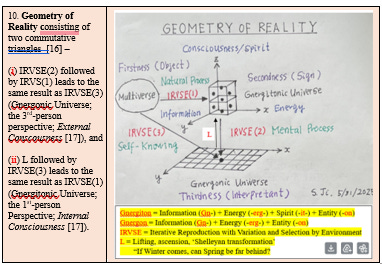 10. Geometry of
Reality consisting of
two commutative
triangles [16] –
(i) IRVSE(2) followed
by IRVS(1) leads to the
same result as IRVSE(3)
(Gnergonic Universe;
the 3rd-person
perspective; External
Consciousness [17]), and
(ii) L followed by
IRVSE(3) leads to the
same result as IRVSE(1)
(Gnergitonic Universe;
the 1st-person
Perspective; Internal
Consciousness [17]).
GEOMETRY OF REALITY
Consciousness/Spirit
Firstness (Object)
z
Secondness (Sign)
Natural Process
Gnergitonic Universe
Multiverse
IRVSE(1)
x Energy
Information
y
IRVSE(3)
L
IRVSE(2) Mental Process
Self-Knowing
x
y
Gnergonic Universe
Thirdness (Interpretant)
S. Ji. 5/31/202
Gnergiton = Information (Gn-) + Energy (-erg-) + Spirit (-it-) + Entity (-on)
Gnergon = Information (Gn-) + Energy (-erg-) + Entity (-on)
IRVSE = Iterative Reproduction with Variation and Selection by Environment
L = Lifting, ascension, ‘Shelleyan transformation’
“If Winter comes, can Spring be far behind?